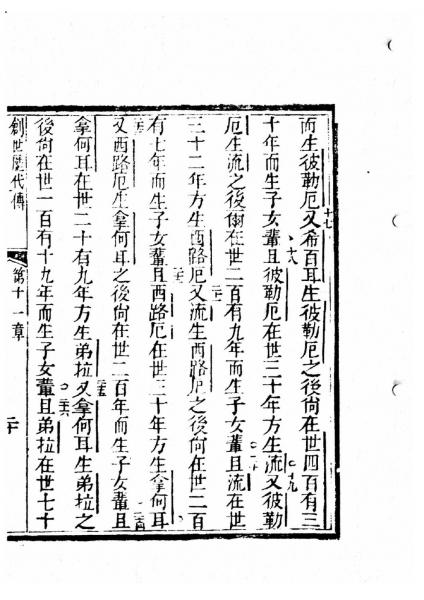 而生彼勒厄又希百耳生彼勒厄之後尙在世四百有三
十七
十年而生子女軰且彼勒厄在世三十年方生流又彼勒
十八
十九
厄生流之後尙在世二百有九年而生子女軰且流在世
二十
三十二年方生西路厄又流生西路厄之後尙在世二百
二一
有七年而生子女軰且西路厄在世三十年方生拿何耳
二二
又西路厄生拿何耳之後尙在世二百年而生子女軰且
二三
二四
拿何耳在世二十有九年方生弟拉又拿何耳生弟拉之
二五
後尙在世一百有十九年而生子女軰且弟拉在世七十
二六
創世歷代傳
第十一章
二十